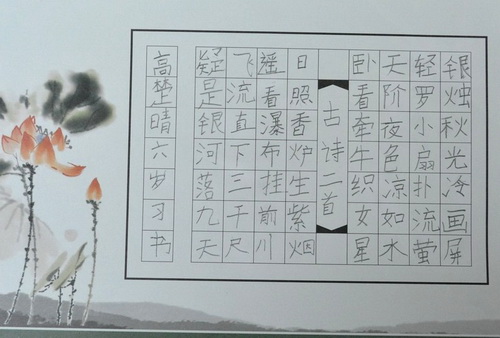 银烛秋光冷画屏
轻罗小扇扑流萤
天阶夜色凉如水
卧看牵牛织女星
古诗二首
日照香炉生紫烟
遥看瀑布挂前川
飞流直下三千尺
疑是银河落九天
高楚晴六岁习书